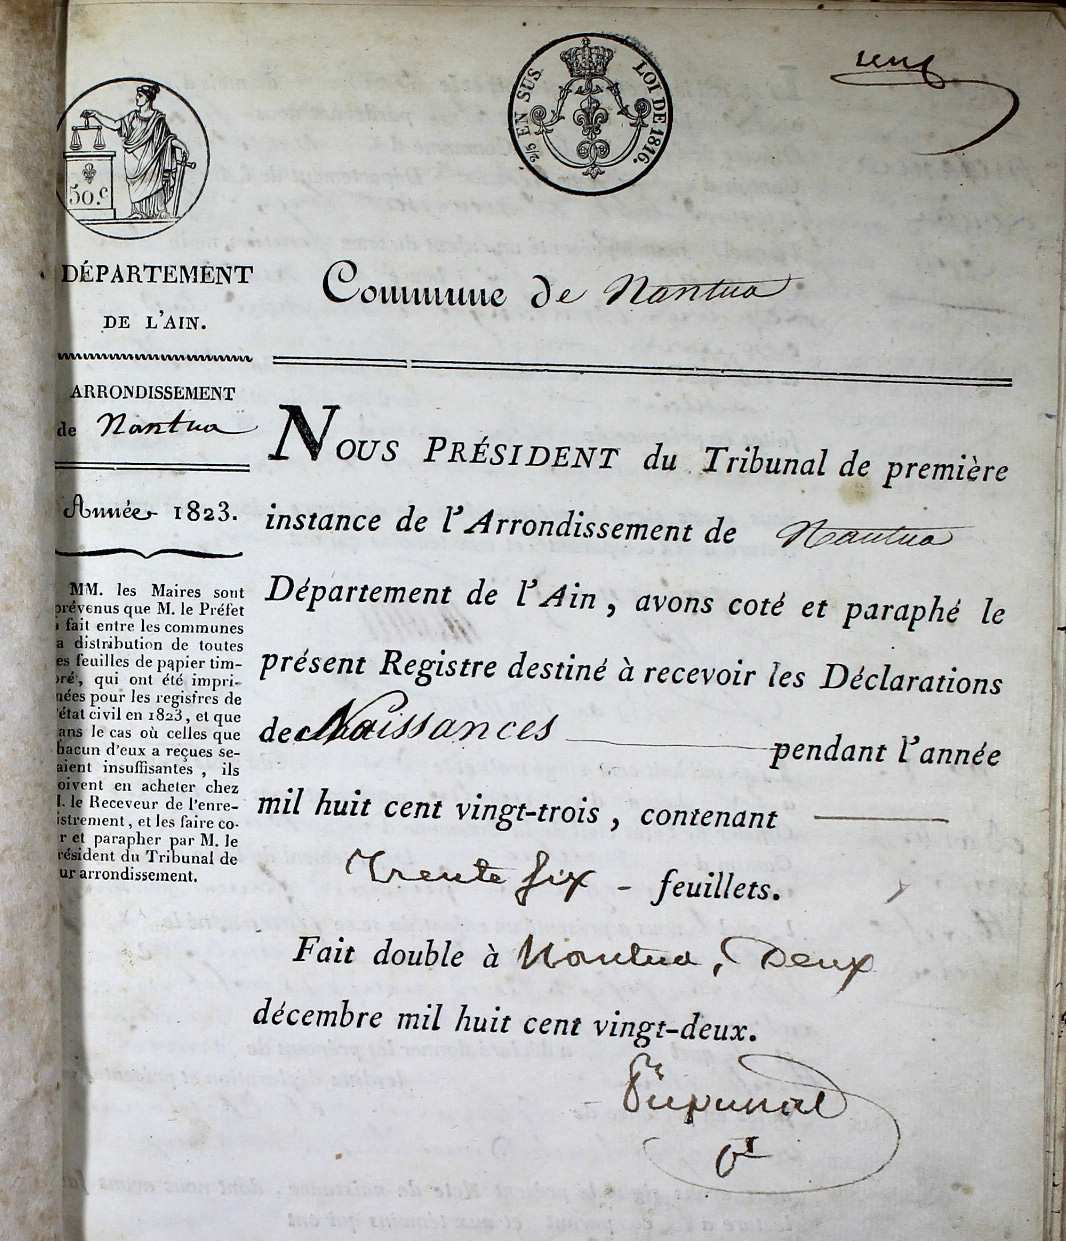 50.c
2/5 EN SUS LOI DE 1816.
DÉPARTEMENT
DE L'AIN.
Commune de Nantua
ARRONDISSEMENT
de Nantua
Année 1823.
MM. les Maires sont
prévenus que M. le Préfet
fait entre les communes
distribution de toutes
feuilles de papier tim-
bré, qui ont été impri-
mées pour les registres de
l'état civil en 1823, et que
dans le cas où celles que
chacun d'eux a reçues se-
raient insuffisantes, ils
doivent en acheter chez
M. le Receveur de l'enre-
gistrement, et les faire co-
ter et parapher par M. le
Président du Tribunal de
leur arrondissement.
NOUS PRÉSIDENT du Tribunal de première
instance de l'Arrondissement de Nantua
Département de l'Ain, avons coté et paraphé le
présent Registre destiné à recevoir les Déclarations
de Naissances pendant l'année
mil huit cent vingt-trois, contenant
Trente six - feuillets.
Fait double à Nantua, Deux
décembre mil huit cent vingt-deux.